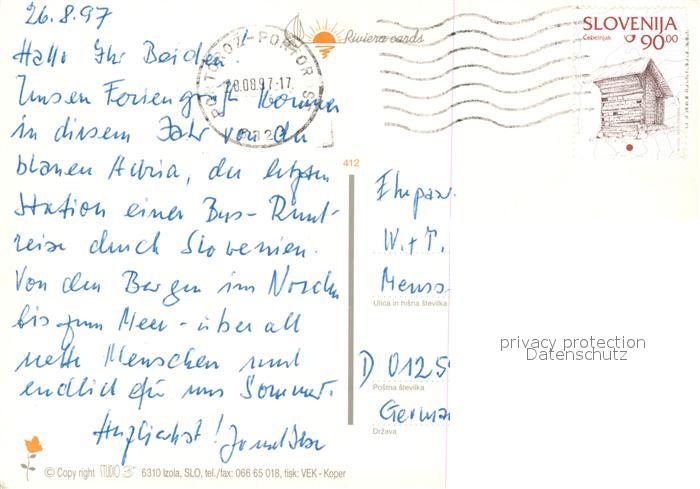 26.8.97
Hallo Ihr Beiden!
Unsen Feriengruß kommt
in diesem Jahr von der
blauen Adria, der letzten
Station einer Bus-Rund-
reise durch Slovenien.
Von den Bergen im Norden
bis zum Meer - überall
nette Menschen und
endlich für uns Sommer.
Herzlichst!
Riviera cards
PORTOROŽ-PORTOROSE
28.08.97-17
SLOVENIJA
Čebelnjak 90.00
412
Ehepaar
W. + T.
Ulica in hišna številka
D 0125
Poštna številka
German
Država
privacy protection
Datenschutz
© Copy right STUDIO 6310 Izola, SLO, tel./fax: 066 65 018, tisk: VEK - Koper